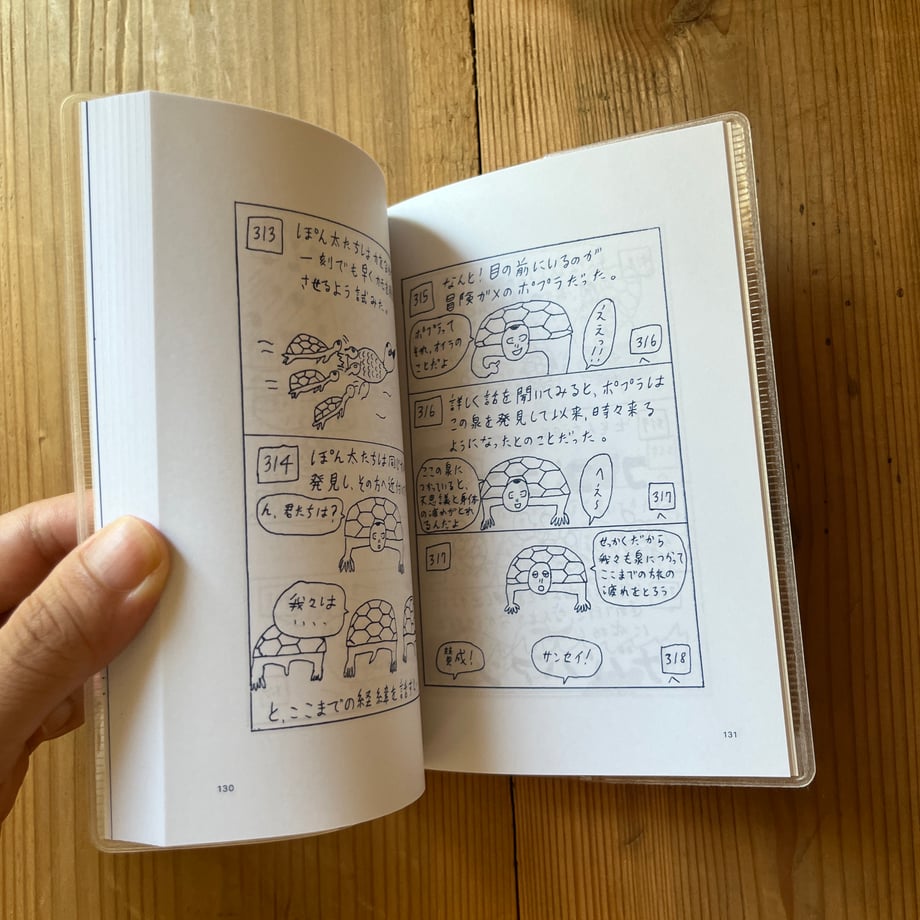 313
ぽん太たちは力を
一刻でも早く
させるよう試みた。
314
ぽん太たちは同じ
発見し、その方へ近付
ん、君たちは?
我々は
、、、、
と、ここまでの経緯を話
130
315
なんと!目の前にいるのが
冒険ガメのポプラだった。
ポプラって
それ、オイラの
ことだよ
ええっ!!
316
へ
316
詳しく話を聞いてみると、ポプラは
この泉を発見して以来、時々来る
ようになったとのことだった。
ここの泉に
つかっていると、
不思議と身体
の疲れがとれ
るんだよ
へえ〜
317
へ
317
せっかくだから
我々も泉につかって
ここまでの旅の
疲れをとろう
賛成!
サンセイ!
318
へ
131